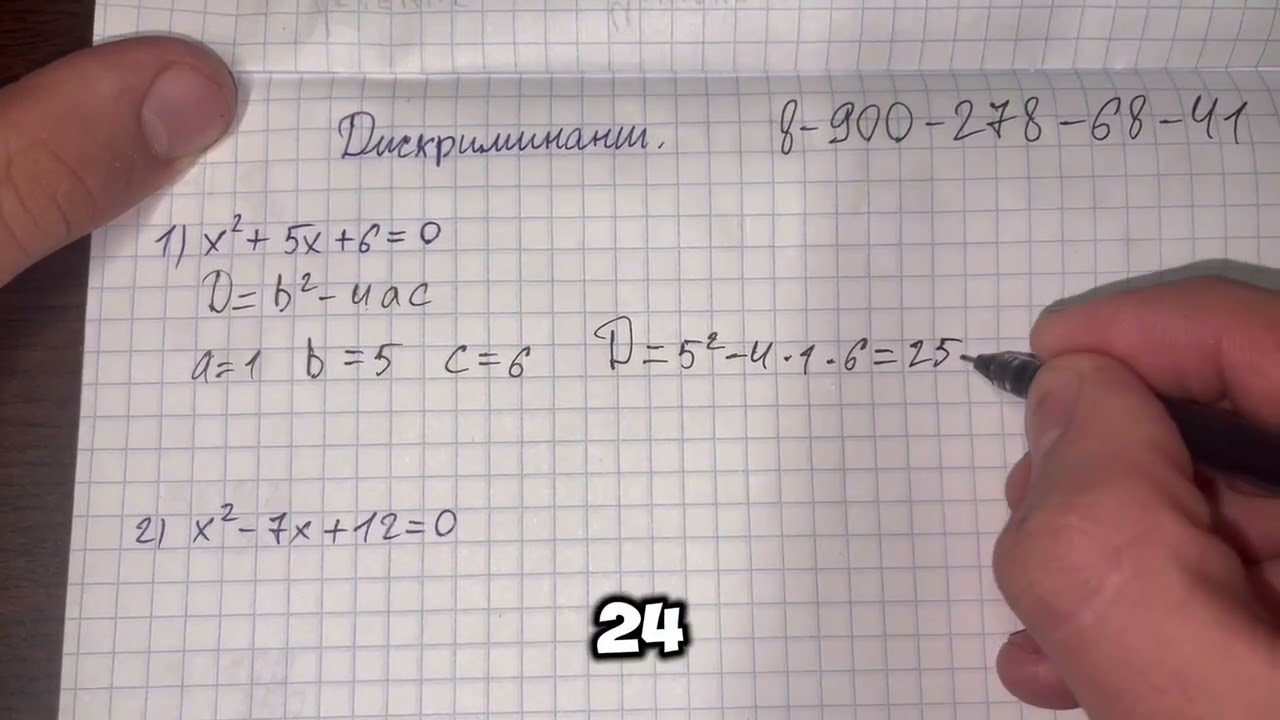 Дискриминант. 8-900-278-68-41
1) x²+ 5x+6=0
D=b²-4ac
a=1 b=5 c=6 D=5²-4·1·6=25
2) x²-7x+12=0
24